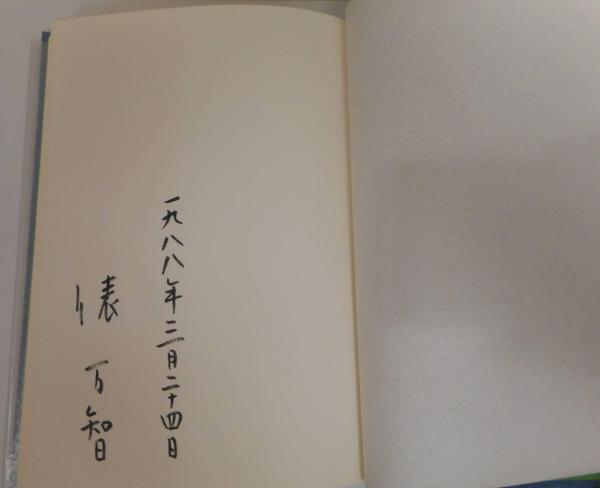 一九八八年三月二十四日
俵万智